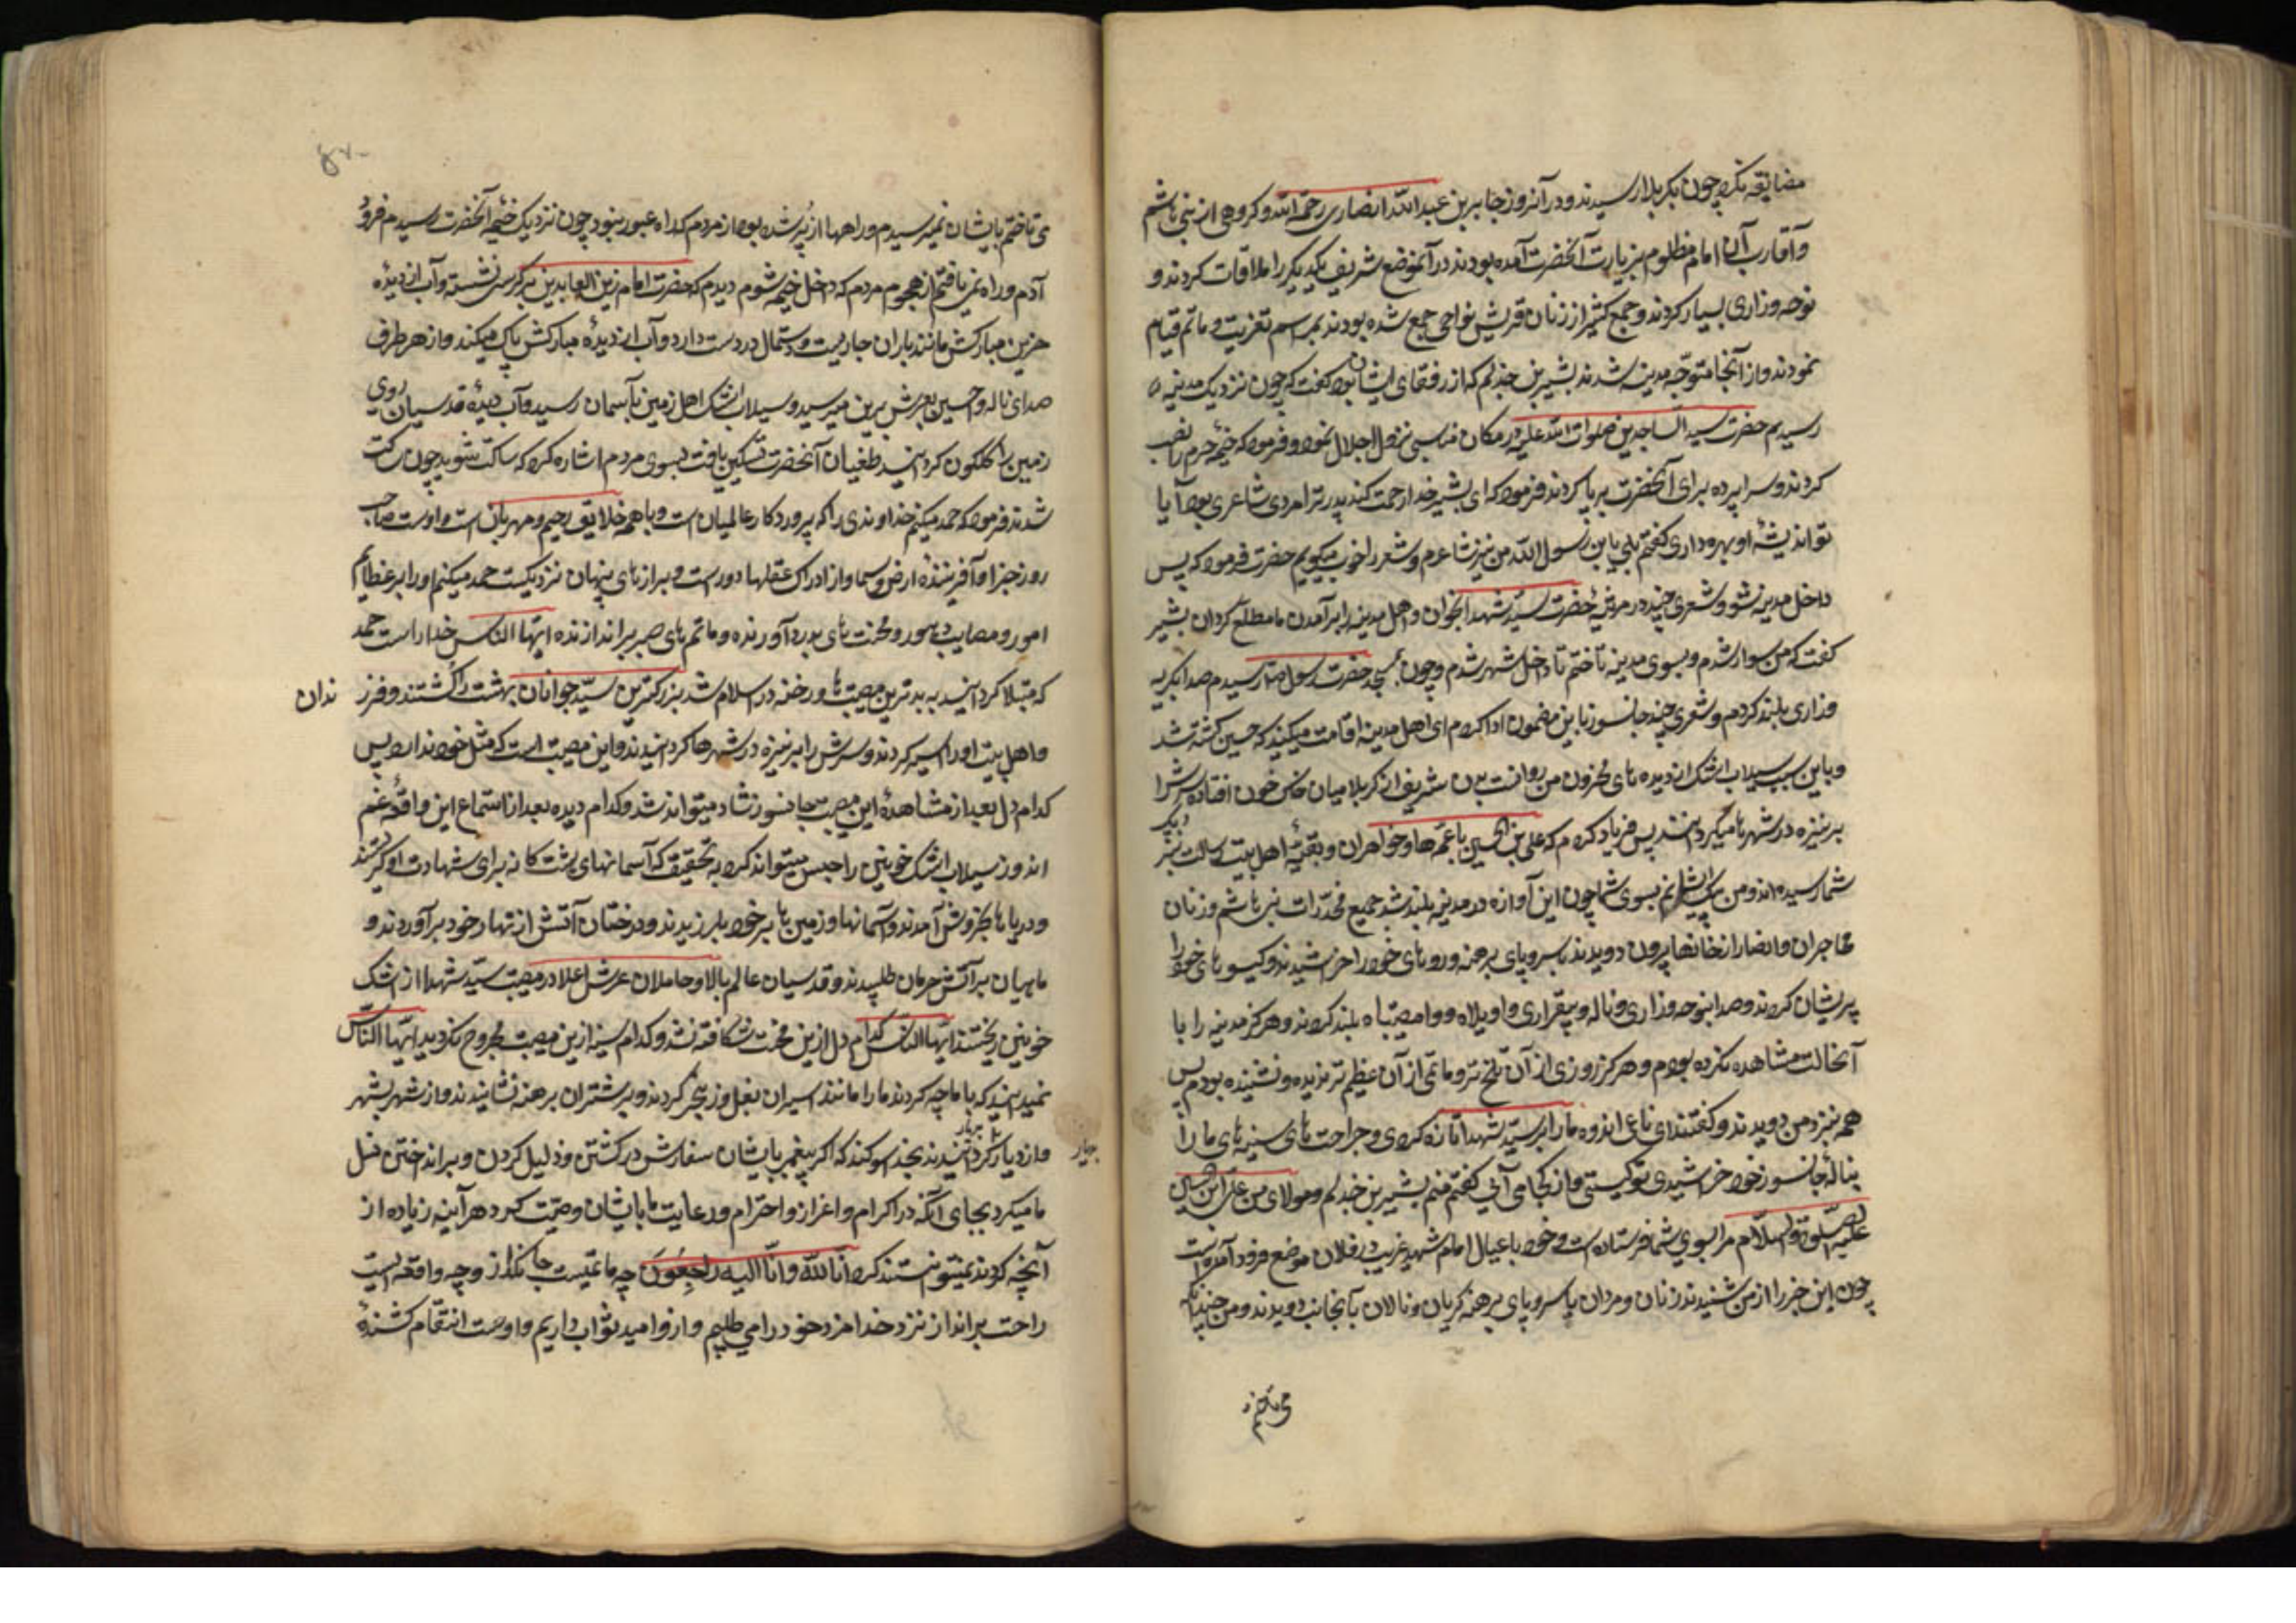 مضایقه نکرد چون بکربلا رسیدند و در آنروز جابر بن عبدالله انصاری رحمه الله و کروهی از بنی هاشم
و آقارب آن امام مظلوم بزیارت آنحضرت آمده بودند در آنموضع شریف یکدیکر را ملاقات کردند و
نوحه و زاری بسیار کردند و جمع کثیر از زنان قریش نواحی جمع شده بودند بمراسم تعزیت و ماتم قیام
نمودند و از آنجا متوجّه مدینه شدند بشیر بن جذلم که از رفقای ایشان بود کفت که چون نزدیک مدینه
رسیدیم حضرت سید الساجدین صلوات الله علیه در مکان مناسبی نزول اجلال نمود و فرمود که خیمه حرم را نصب
کردند و سراپرده برای آنحضرت برپا کردند فرمود که ای بشیر خدا رحمت کند پدر ترا مردی شاعری بود آیا
تو اندیشه او بهره داری کفتم بلی یابن رسول الله من نیز شاعرم و شعر را خوب میکویم حضرت فرمود که پس
داخل مدینه شو و شعری چند در مرثیه حضرت سیّد شهدا بخوان و اهل مدینه را بر آمدن ما مطلع کردان بشیر
کفت که من سوار شدم و بسوی مدینه تاختم تا داخل شهر شدم و چون بمسجد حضرت رسول رسیدم صدا بکریه
و زاری بلند کردم و شعری چند جانسوز باین مضمون ادا کردم ای اهل مدینه اقامت میکنید که حسین کشته شد
و باین سبب سیلاب اشک از دیده های محزون من روانست بدن شریف او در کربلا میان خاک خون افتاده سرش را
بر نیزه در شهرها میکردانند پس فریاد کردم که علی بن الحسین با عمّه ها و خواهران و بقیّه اهل بیت رسالت بنزدیک
شما رسیده اند و من پیک ایشانم بسوی شما چون این آوازه در مدینه بلند شد جمیع مخدّرات بنی هاشم و زنان
مهاجران و انصار از خانها بیرون دویدند با سر و پای برهنه و روهای خود را خراشیدند و کیسوهای خود را
پریشان کردند و صدا بنوحه و زاری و ناله و بیقراری و واویلاه و وامصیبتاه بلند کردند و هرکز مدینه را با
آنحالت مشاهده نکرده بودم و هرکز روزی از آن تلخ تر و ماتمی از آن عظیم تر ندیده و نشنیده بودم پس
همه بنزد من دویدند و کفتند ای ناعی اندوه ما را بر سیّد شهدا تازه کردی و جراحت های سینه های ما را
بناله جانسوز خود خراشیدی تو کیستی و از کجا می آئی کفتم منم بشیر بن جذلم و مولای من علی ابن حسین
علیه الصلوة والسلام مرا بسوی شما فرستاده است و خود با عیال امام شهید غریب در فلان موضع فرود آمده است
چون این خبر را از من شنیدند زنان و مردان با سر و پای برهنه کریان و نالان بآنجانب دویدند و من چندانکه
می تاختم
می تاختم بایشان نمیرسیدم و راهها از پر شده بود از مردم که راه عبور نبود چون نزدیک خیمه آنحضرت رسیدم فرود
آمدم و راه نمی یافتم از هجوم مردم که داخل خیمه شوم دیدم که حضرت امام زین العابدین بر کرسی نشسته و آب از دیده
حزین مبارکش مانند باران جاریست و دستمال در دست دارد و آب از دیده مبارکش پاک میکند و از هر طرف
صدای ناله و احسین بعرش برین میرسید و سیلاب اشک اهل زمین بآسمان رسید و آب دیده قدسیان روی
زمین را کلکون کردانید طغیان آنحضرت تسکین یافت بسوی مردم اشاره کرد که ساکت شوید چون ساکت
شدند فرمود که حمد میکنم خداوندی را که پروردکار عالمیان است و با همه خلایق رحیم و مهربان است و اوست صاحب
روز جزا و آفریننده ارض و سما و از ادراک عقلها دور است و برازهای پنهان نزدیکست حمد میکنم او را بر عظایم
امور و مصایب دهور و محنت های بدرد آورنده و ماتم های صبر براندازنده ایّها النّاس خدا راست حمد
که مبتلا کردانید به بدترین مصیبت ها و رخنه در اسلام شد بزرکترین سیّد جوانان بهشت را کشتند و فرز ندان
و اهل بیت او را اسیر کردند و سرش را بر نیزه در شهرها کردانیدند و این مصیبت است که مثل خود ندارد پس
کدام دل بعد از مشاهده این مصیبت جانسوز شاد میتواند شد و کدام دیده بعد از استماع این واقعه غم
اندوز سیلاب اشک خونین را حبس میتواند کرد به تحقیق که آسمانهای هشت کانه برای شهادت او کریستند
و دریاها بخروش آمدند و آسمانها و زمین ها بر خود بلرزیدند و درختان آتش از نهاد خود برآوردند و
ماهیان بر آتش حرمان طپیدند و قدسیان عالم بالا و حاملان عرش اعلا در مصیبت سیّد شهدا از اشک
خونین ریختند ایّها النّاس کدام دل ازین محنت شکافته نشد و کدام سینه ازین مصیبت مجروح نکردید ایّها النّاس
نمیدانید که با ما چه کردند ما را مانند اسیران بغل و زنجیر کردند و بر شتران برهنه نشانیدند و از شهر بشهر
و از دیار بدیار کردانیدند بخدا سوکند که اکر پیغمبر بایشان سفارش در کشتن و ذلیل کردن و برانداختن نسل
ما میکرد بجای آنکه در اکرام و اعزاز و احترام و رعایت ما بایشان وصیت کرد هر آینه زیاده از
آنچه کردند نمیتوانستند کرد انا لله وانا الیه راجعون چه ماتمیست جانکداز و چه واقعه ایست
راحت برانداز از نزد خدا مزد خود را می طلبیم و ازو امید ثواب داریم و اوست انتقام کشندهٔ